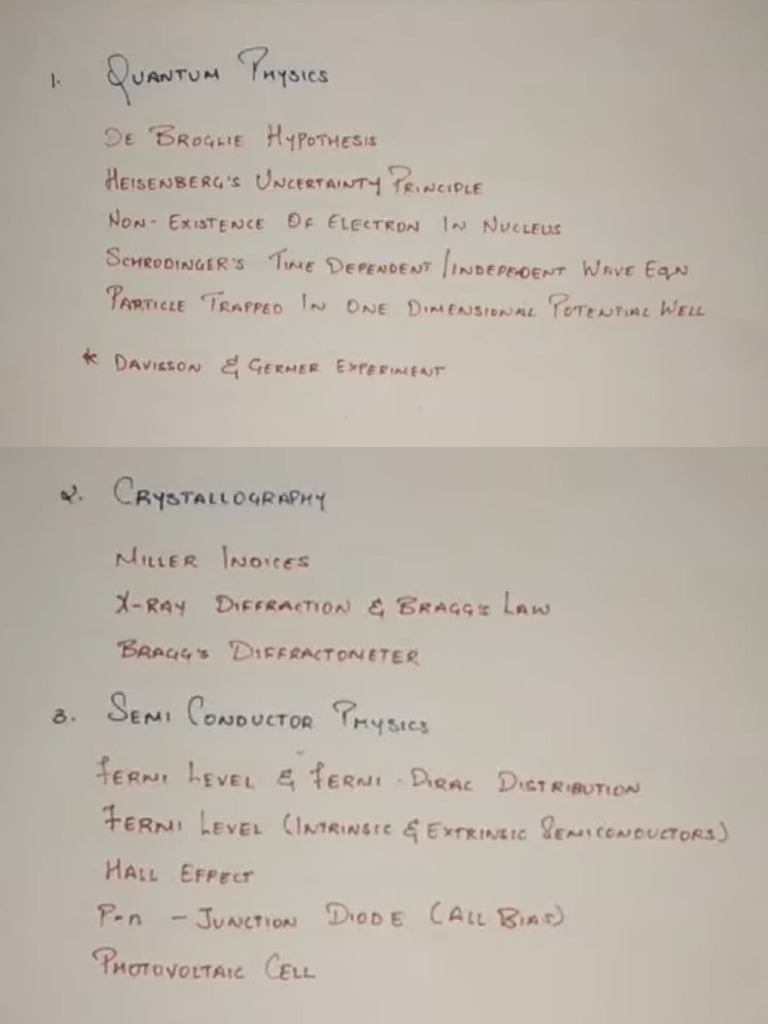 1. QUANTUM PHYSICS
DE BROGLIE HYPOTHESIS
HEISENBERG'S UNCERTAINTY PRINCIPLE
NON-EXISTENCE OF ELECTRON IN NUCLEUS
SCHRODINGER'S TIME DEPENDENT/INDEPENDENT WAVE EQN
PARTICLE TRAPPED IN ONE DIMENSIONAL POTENTIAL WELL
* DAVISSON & GERMER EXPERIMENT
2. CRYSTALLOGRAPHY
MILLER INDICES
X-RAY DIFFRACTION & BRAGG'S LAW
BRAGG'S DIFFRACTOMETER
3. SEMI CONDUCTOR PHYSICS
FERMI LEVEL & FERMI-DIRAC DISTRIBUTION
FERMI LEVEL (INTRINSIC & EXTRINSIC SEMICONDUCTORS)
HALL EFFECT
P-n - JUNCTION DIODE (ALL BIAS)
PHOTOVOLTAIC CELL